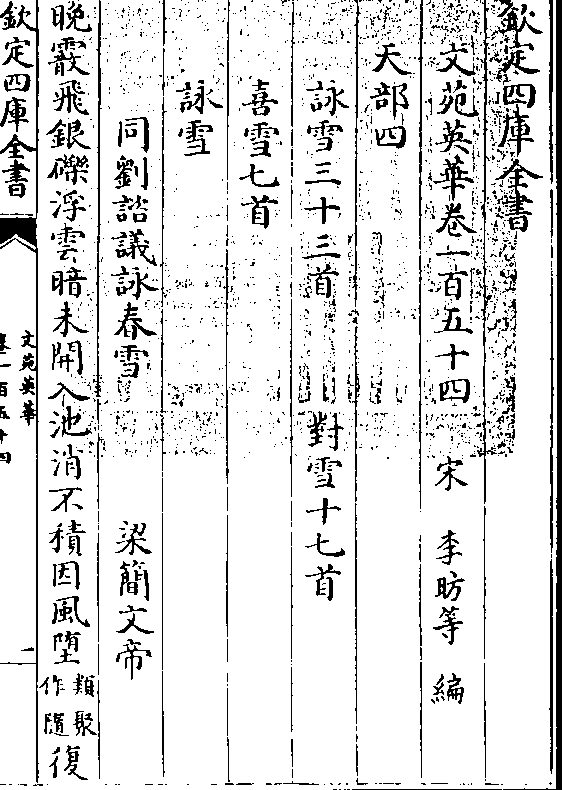 欽定四庫全書
文苑英華卷一百五十四　宋　李昉等　編
天部四
詠雪三十三首　對雪十七首
喜雪七首
詠雪
同劉諮議詠春雪　梁簡文帝
晩霰飛銀礫浮雲暗未開入池消不積因風墮類聚作隨復
欽定四庫全書
文苑英華
卷一百五十四
一